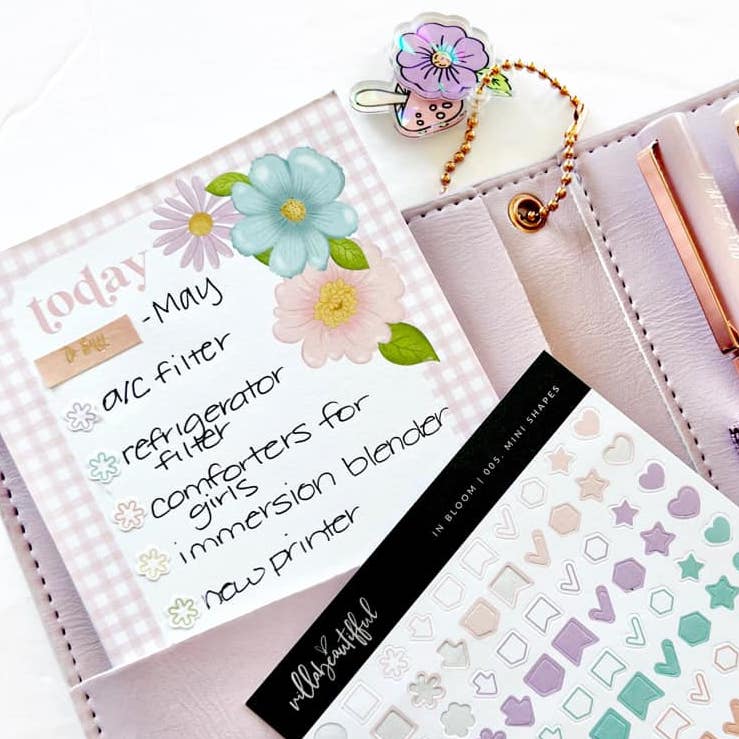 today
-May
a/c filter
refrigerator
filter
comforters for
girls
immersion blender
new printer
IN BLOOM | 005. MINI SHAPES
villabeautifful